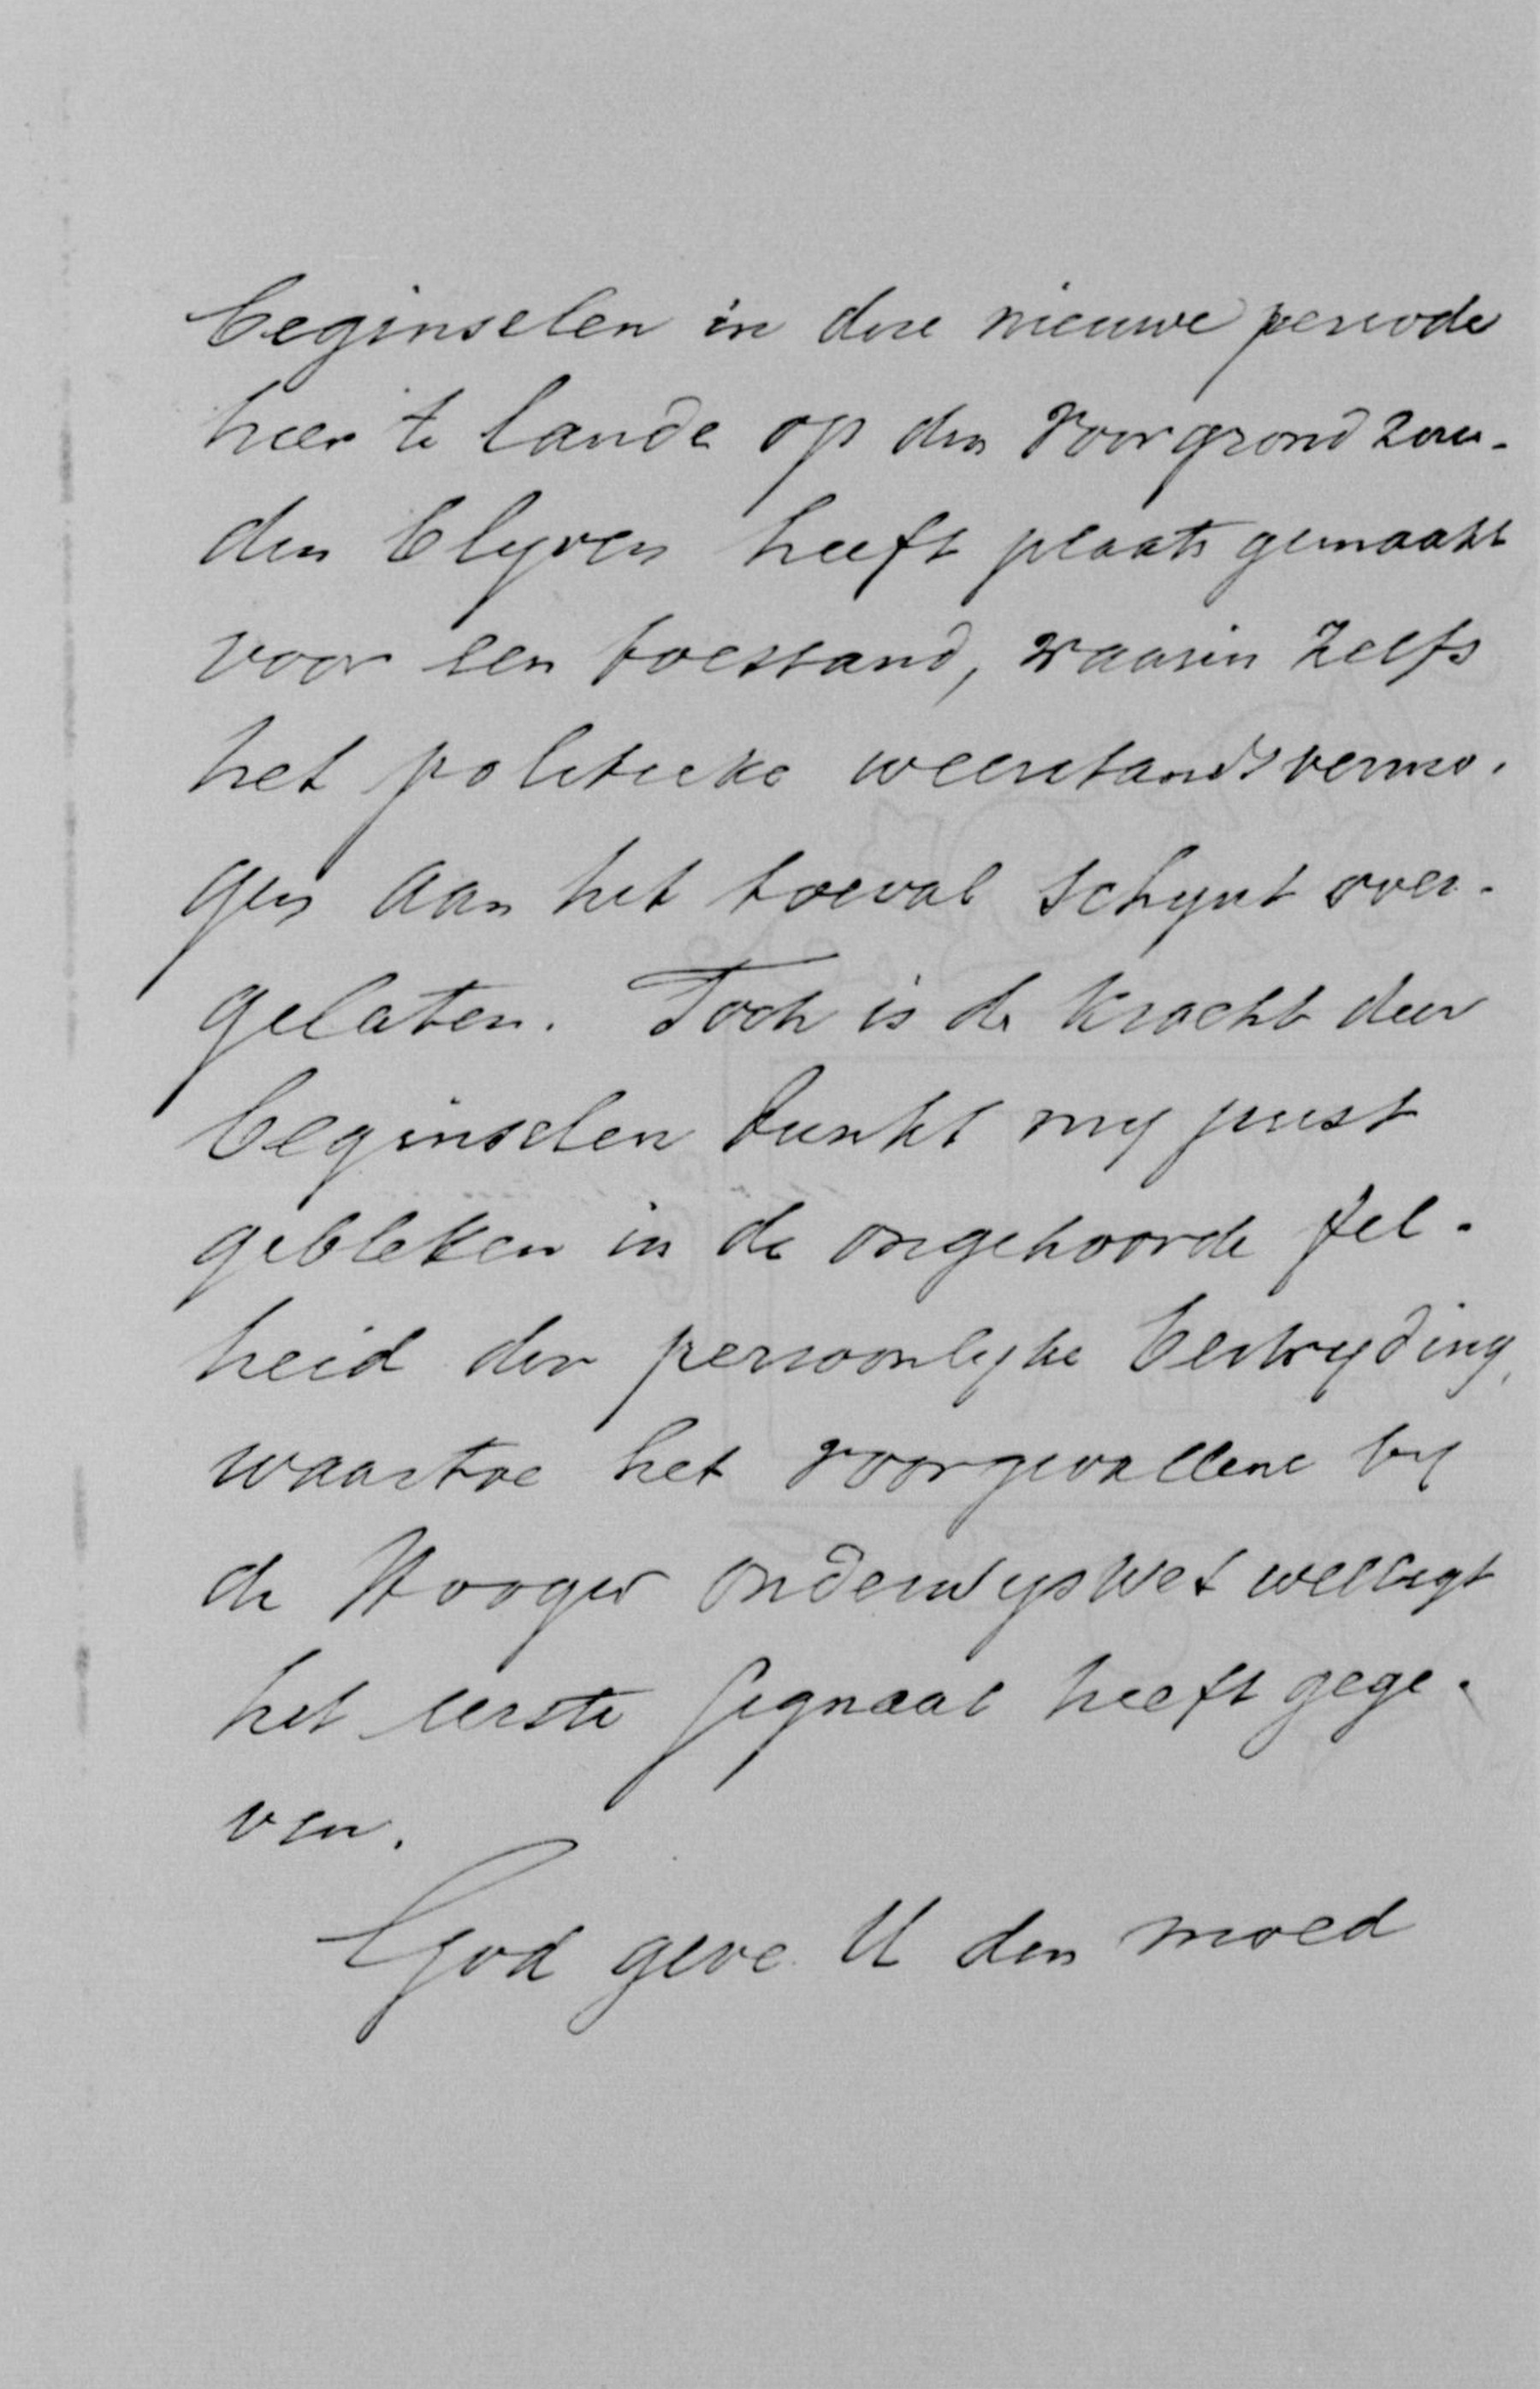 beginselen in deze nieuwe periode
hier te lande op den voorgrond zou-
den blyven heeft plaats gemaakt
voor een toestand, waarin zelfs
het politieke weerstandsvermo-
gen aan het toeval schynt over-
gelaten. Toch is de kracht der
beginselen dunkt my juist
gebleken in de ongehoorde fel-
heid der persoonlyke bestryding,
waartoe het voorgevallene by
de Hooger Onderwyswet welligt
het eerste signaal heeft gege-
ven.
God geve U den moed